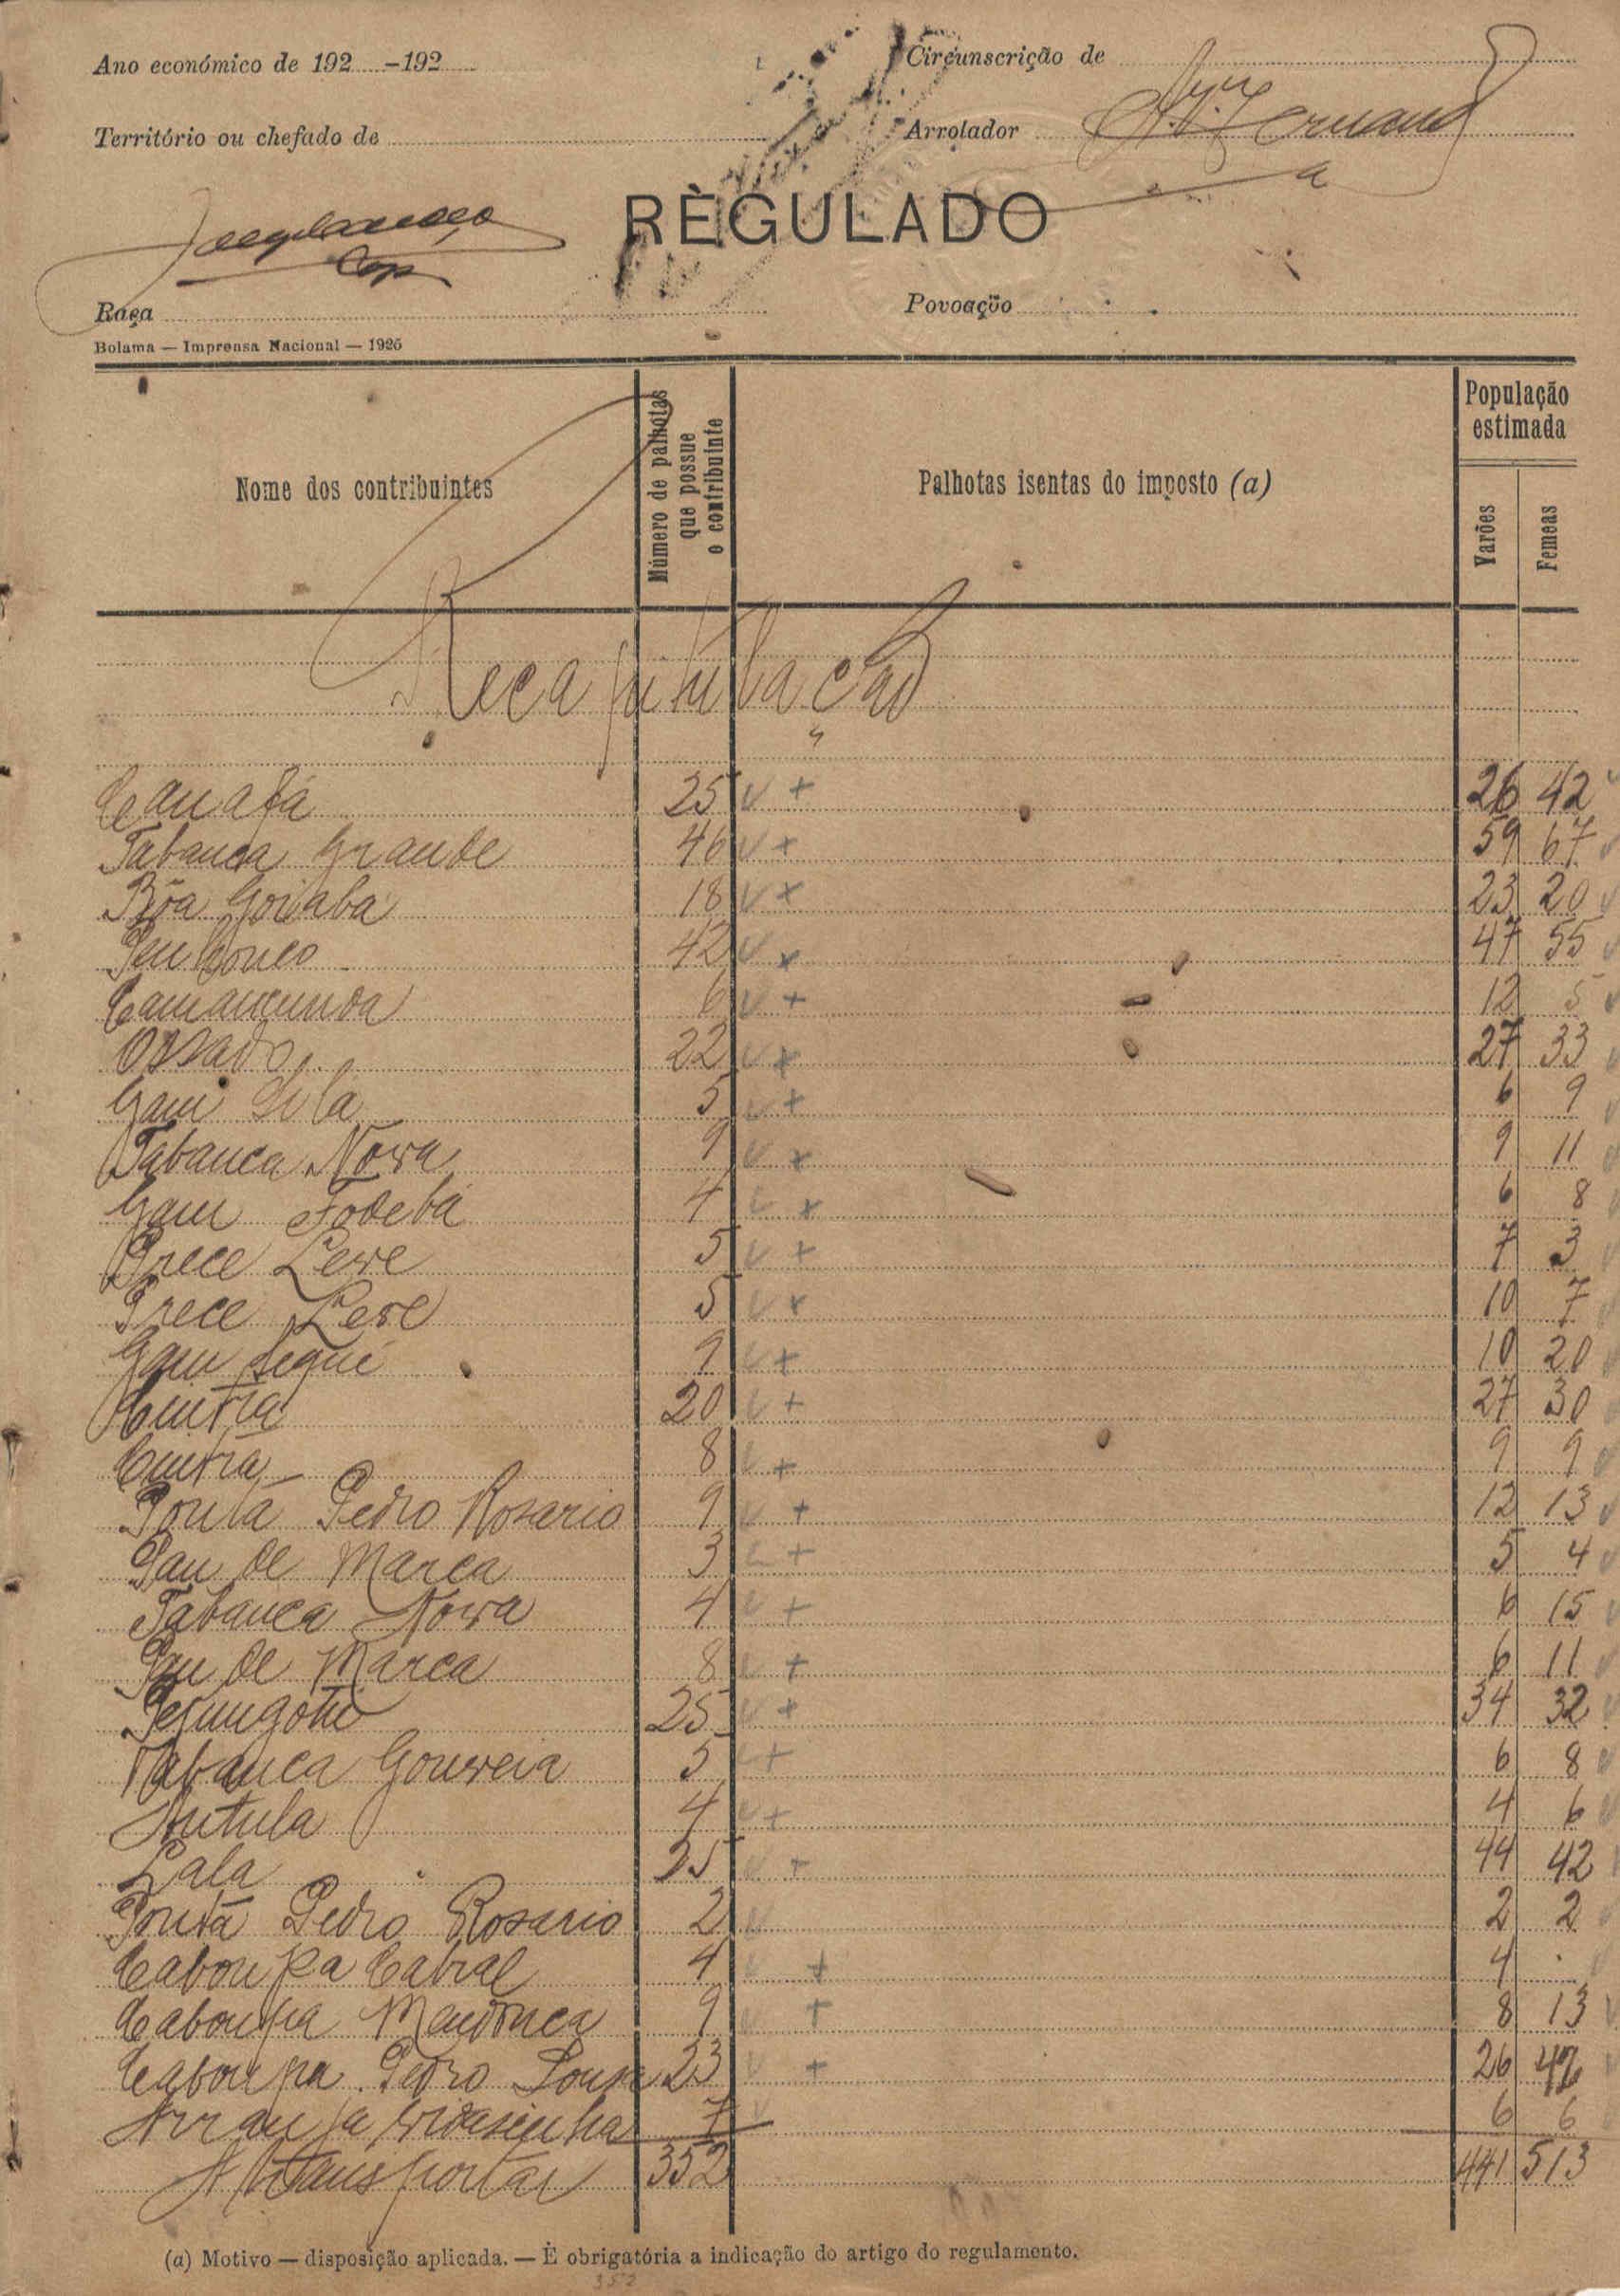 Ano económico de 192 -192
Circunscrição de
Território ou chefado de
Arrolador
RÈGULADO
Raça
Povoação
Bolama — Imprensa Nacional — 1925
Nome dos contribuintes
Número de palhotas que possue o contribuinte
Palhotas isentas do imposto (a)
População estimada
Varões
Femeas
Recapitulação
25 26 42
Tabanca Grande 46 59 67
Bôa Goiaba 18 23 20
42 47 55
Camamcunda 6 12 5
22 27 33
Gam 5 6 9
Tabanca Nova 9 9 11
Gam Fodebá 4 6 8
Prece Leve 5 7 3
Prece Leve 5 10 7
Gam 9 10 20
Cuntra 20 27 30
Cuntra 8 9 9
Ponta Pedro Rosario 9 12 13
Pau de Marca 3 5 4
Tabanca Nova 4 6 15
Pau de Marca 8 6 11
25 34 32
Tabanca Gouveia 5 6 8
Antula 4 4 6
Lala 25 44 42
Ponta Pedro Rosario 2 2 2
Caboupa Cabral 4 4 .
Caboupa Mendonca 9 8 13
Caboupa Pedro 23 26 42
7 6 6
A transportar 352 441 513
(a) Motivo — disposição aplicada. — É obrigatória a indicação do artigo do regulamento.
352